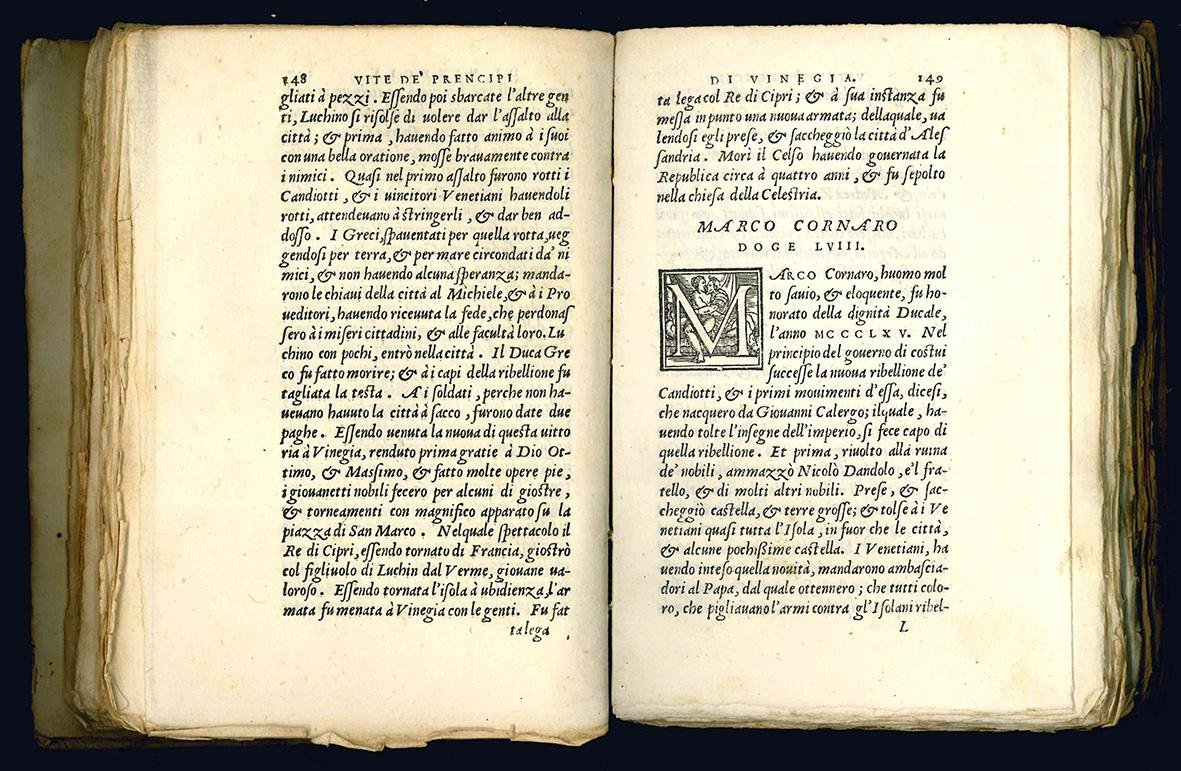 148 VITE DE' PRENCIPI
gliati à pezzi. Essendo poi sbarcate l'altre gen
ti, Luchino si risolse di uolere dar l'assalto alla
città; & prima, hauendo fatto animo à i suoi
con una bella oratione, mosse brauamente contra
i nimici. Quasi nel primo assalto furono rotti i
Candiotti, & i uincitori Venetiani hauendoli
rotti, attendeuano à stringerli, & dar ben ad-
dosso. I Greci, spauentati per quella rotta, ueg
gendosi per terra, & per mare circondati da' ni
mici, & non hauendo alcuna speranza; manda-
rono le chiaui della città al Michiele, & à i Pro
ueditori, hauendo riceuuta la fede, che perdonas
sero à i miseri cittadini, & alle facultà loro. Lu
chino con pochi, entrò nella città. Il Duca Gre
co fu fatto morire; & à i capi della ribellione fu
tagliata la testa. A i soldati, perche non ha-
ueuano hauuto la città à sacco, furono date due
paghe. Essendo uenuta la nuoua di questa uitto
ria à Vinegia, renduto prima gratie à Dio Ot-
timo, & Massimo, & fatto molte opere pie,
i giouanetti nobili fecero per alcuni dì giostre,
& torneamenti con magnifico apparato sù la
piazza di San Marco. Nelquale spettacolo il
Re di Cipri, essendo tornato di Francia, giostrò
col figliuolo di Luchin dal Verme, giouane ua-
loroso. Essendo tornata l'isola à ubidienza, l'ar
mata fu menata à Vinegia con le genti. Fu fat
ta lega
DI VINEGIA. 149
ta lega col Re di Cipri; & à sua instanza fu
messa in punto una nuoua armata; dellaquale, ua
lendosi egli prese, & saccheggiò la città d'Ales
sandria. Morì il Celso hauendo gouernata la
Republica circa à quattro anni, & fu sepolto
nella chiesa della Celestria.
MARCO CORNARO
DOGE LVIII.
MARCO Cornaro, huomo mol
to sauio, & eloquente, fu ho-
norato della dignità Ducale,
l'anno MCCCLXV. Nel
principio del gouerno di costui
successe la nuoua ribellione de'
Candiotti, & i primi mouimenti d'essa, dicesi,
che nacquero da Giouanni Calergo; ilquale, ha-
uendo tolte l'insegne dell'imperio, si fece capo di
quella ribellione. Et prima, riuolto alla ruina
de' nobili, ammazzò Nicolò Dandolo, e'l fra-
tello, & di molti altri nobili. Prese, & sac-
cheggiò castella, & terre grosse; & tolse à i Ve
netiani quasi tutta l'Isola, in fuor che le città,
& alcune pochissime castella. I Venetiani, ha
uendo inteso quella nouità, mandarono ambascia-
dori al Papa, dal quale ottennero; che tutti colo-
ro, che pigliauano l'armi contra gl'Isolani ribel-
L